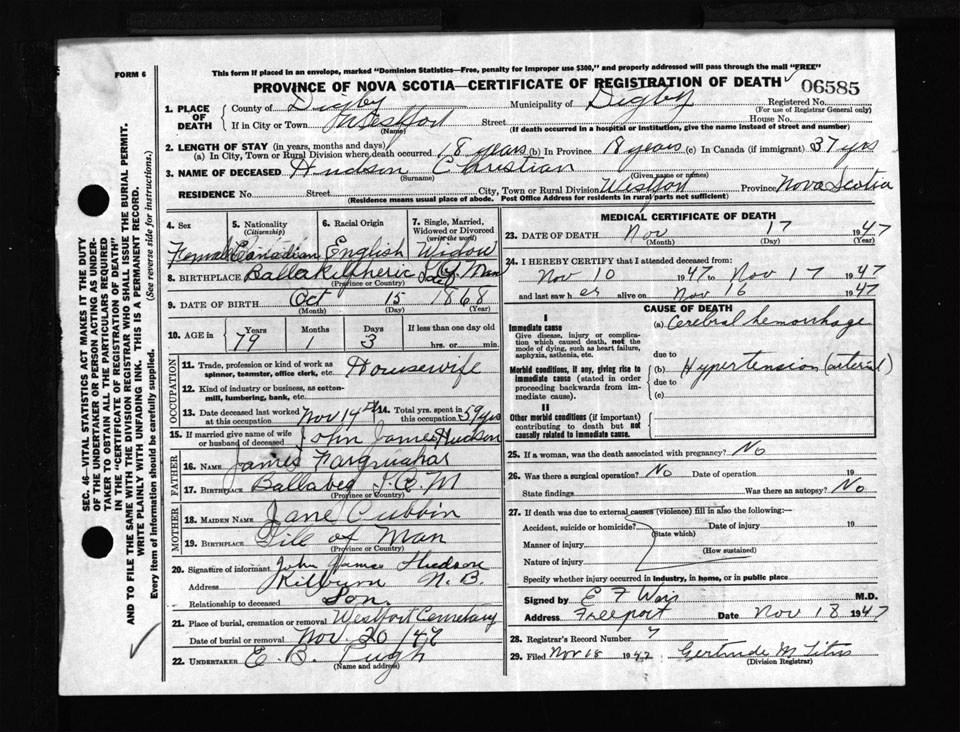 FORM 6
This form if placed in an envelope, marked "Dominion Statistics—Free, penalty for improper use $300," and properly addressed will pass through the mail "FREE"
PROVINCE OF NOVA SCOTIA—CERTIFICATE OF REGISTRATION OF DEATH
06585
1. PLACE OF DEATH { County of Digby Municipality of Digby Registered No.
(For use of Registrar General only)
If in City or Town Westport Street House No.
(Name) (If death occurred in a hospital or institution, give the name instead of street and number)
2. LENGTH OF STAY (in years, months and days)
(a) In City, Town or Rural Division where death occurred 18 years (b) In Province 18 years (c) In Canada (if immigrant) 37 yrs
3. NAME OF DECEASED Hudson Christian
(Surname) (Given name or names)
RESIDENCE No. Street City, Town or Rural Division Westport Province Nova Scotia
(Residence means usual place of abode. Post Office Address for residents in rural parts not sufficient)
SEC. 46—VITAL STATISTICS ACT MAKES IT THE DUTY
OF THE UNDERTAKER OR PERSON ACTING AS UNDER-
TAKER TO OBTAIN ALL THE PARTICULARS REQUIRED
IN THE "CERTIFICATE OF REGISTRATION OF DEATH"
AND TO FILE THE SAME WITH THE DIVISION REGISTRAR WHO SHALL ISSUE THE BURIAL PERMIT.
WRITE PLAINLY WITH UNFADING INK. THIS IS A PERMANENT RECORD.
Every item of information should be carefully supplied. (See reverse side for instructions.)
4. Sex 5. Nationality (Citizenship) 6. Racial Origin 7. Single, Married, Widowed or Divorced (write the word)
Female Canadian English Widow
8. BIRTHPLACE Man
(Province or Country)
9. DATE OF BIRTH Oct 15 1868
(Month) (Day) (Year)
10. AGE in { Years Months Days If less than one day old
79 1 3 hrs. or min.
OCCUPATION
11. Trade, profession or kind of work as spinner, teamster, office clerk, etc. Housewife
12. Kind of industry or business, as cotton-mill, lumbering, bank, etc.
13. Date deceased last worked at this occupation Nov 14th 14. Total yrs. spent in this occupation 59 yrs
15. If married give name of wife or husband of deceased } John James Hudson
FATHER
16. NAME James Farquahar
17. BIRTHPLACE Ballabeg I. O. M
(Province or Country)
MOTHER
18. MAIDEN NAME Jane Cubbin
19. BIRTHPLACE of Man
(Province or Country)
20. Signature of informant John James Hudson
Address Kilburn N. B.
Relationship to deceased Son.
21. Place of burial, cremation or removal Westport Cemetary
Date of burial or removal Nov. 20/47
22. UNDERTAKER E. B. Pugh
(Name and address)
MEDICAL CERTIFICATE OF DEATH
23. DATE OF DEATH Nov 17 1947
(Month) (Day) (Year)
24. I HEREBY CERTIFY that I attended deceased from:
Nov 10 1947 to Nov 17 1947
and last saw her alive on Nov 16 1947
CAUSE OF DEATH
I
Immediate cause (a) Cerebral hemorrhage
Give disease, injury or complication which caused death, not the mode of dying, such as heart failure, asphyxia, asthenia, etc.
due to
Morbid conditions, if any, giving rise to immediate cause (stated in order proceeding backwards from immediate cause). (b) Hypertension (arterial)
due to
(c)
II
Other morbid conditions (if important) contributing to death but not causally related to immediate cause.
25. If a woman, was the death associated with pregnancy? No
26. Was there a surgical operation? No Date of operation 19
State findings Was there an autopsy? No
27. If death was due to external causes (violence) fill in also the following:—
Accident, suicide or homicide? Date of injury 19
(State which)
Manner of injury
(How sustained)
Nature of injury
Specify whether injury occurred in industry, in home, or in public place
Signed by E F M.D.
Address Freeport Date Nov 18 1947
28. Registrar's Record Number 7
29. Filed Nov 18 1947 Gertrude M Titus
(Division Registrar)